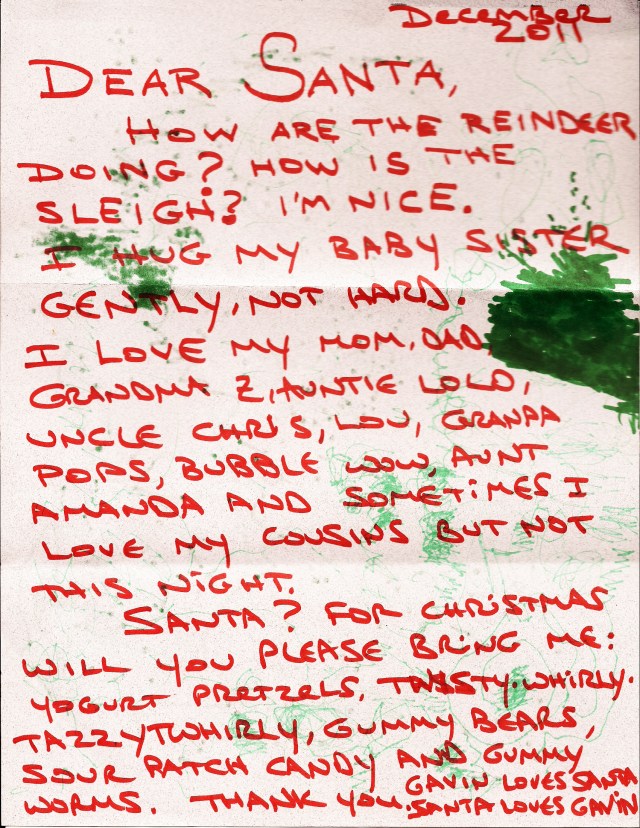 DECEMBER
2011
DEAR SANTA,
HOW ARE THE REINDEER
DOING? HOW IS THE
SLEIGH? I'M NICE.
I HUG MY BABY SISTER
GENTLY, NOT HARD.
I LOVE MY MOM, DAD,
GRANDMA Z, AUNTIE LOLO,
UNCLE CHRIS, LOU, GRANPA
POPS, BUBBLE WOW, AUNT
AMANDA AND SOMETIMES I
LOVE MY COUSINS BUT NOT
THIS NIGHT.
SANTA? FOR CHRISTMAS
WILL YOU PLEASE BRING ME:
YOGURT PRETZELS, TWSSTY.WHIRLY.
TAZZYTWHIRLY, GUMMY BEARS,
SOUR PATCH CANDY AND GUMMY
WORMS. THANK YOU.
GAVIN LOVES SANTA
SANTA LOVES GAVIN